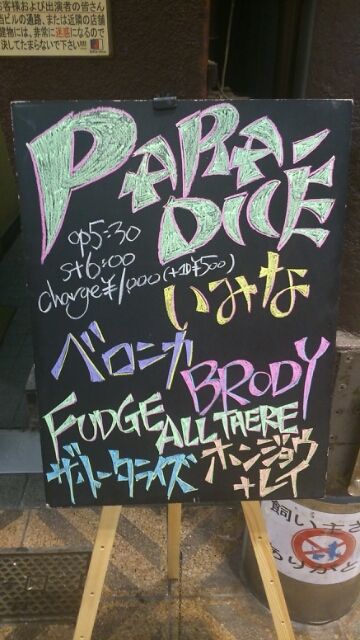 お客様および出演者の皆さん
当ビルの通路、または近隣の店舗
建物には、非常に迷惑になるので
決してたまらないで下さい!!!
PARA-
DICE
op5:30
st6:00
charge¥1,000(+1D¥500)
いみな
ベロニカ
BRODY
FUDGE
ALL THERE
ザ・トークライズ
ホンジョウ
+レイ
飼い主
ありがと